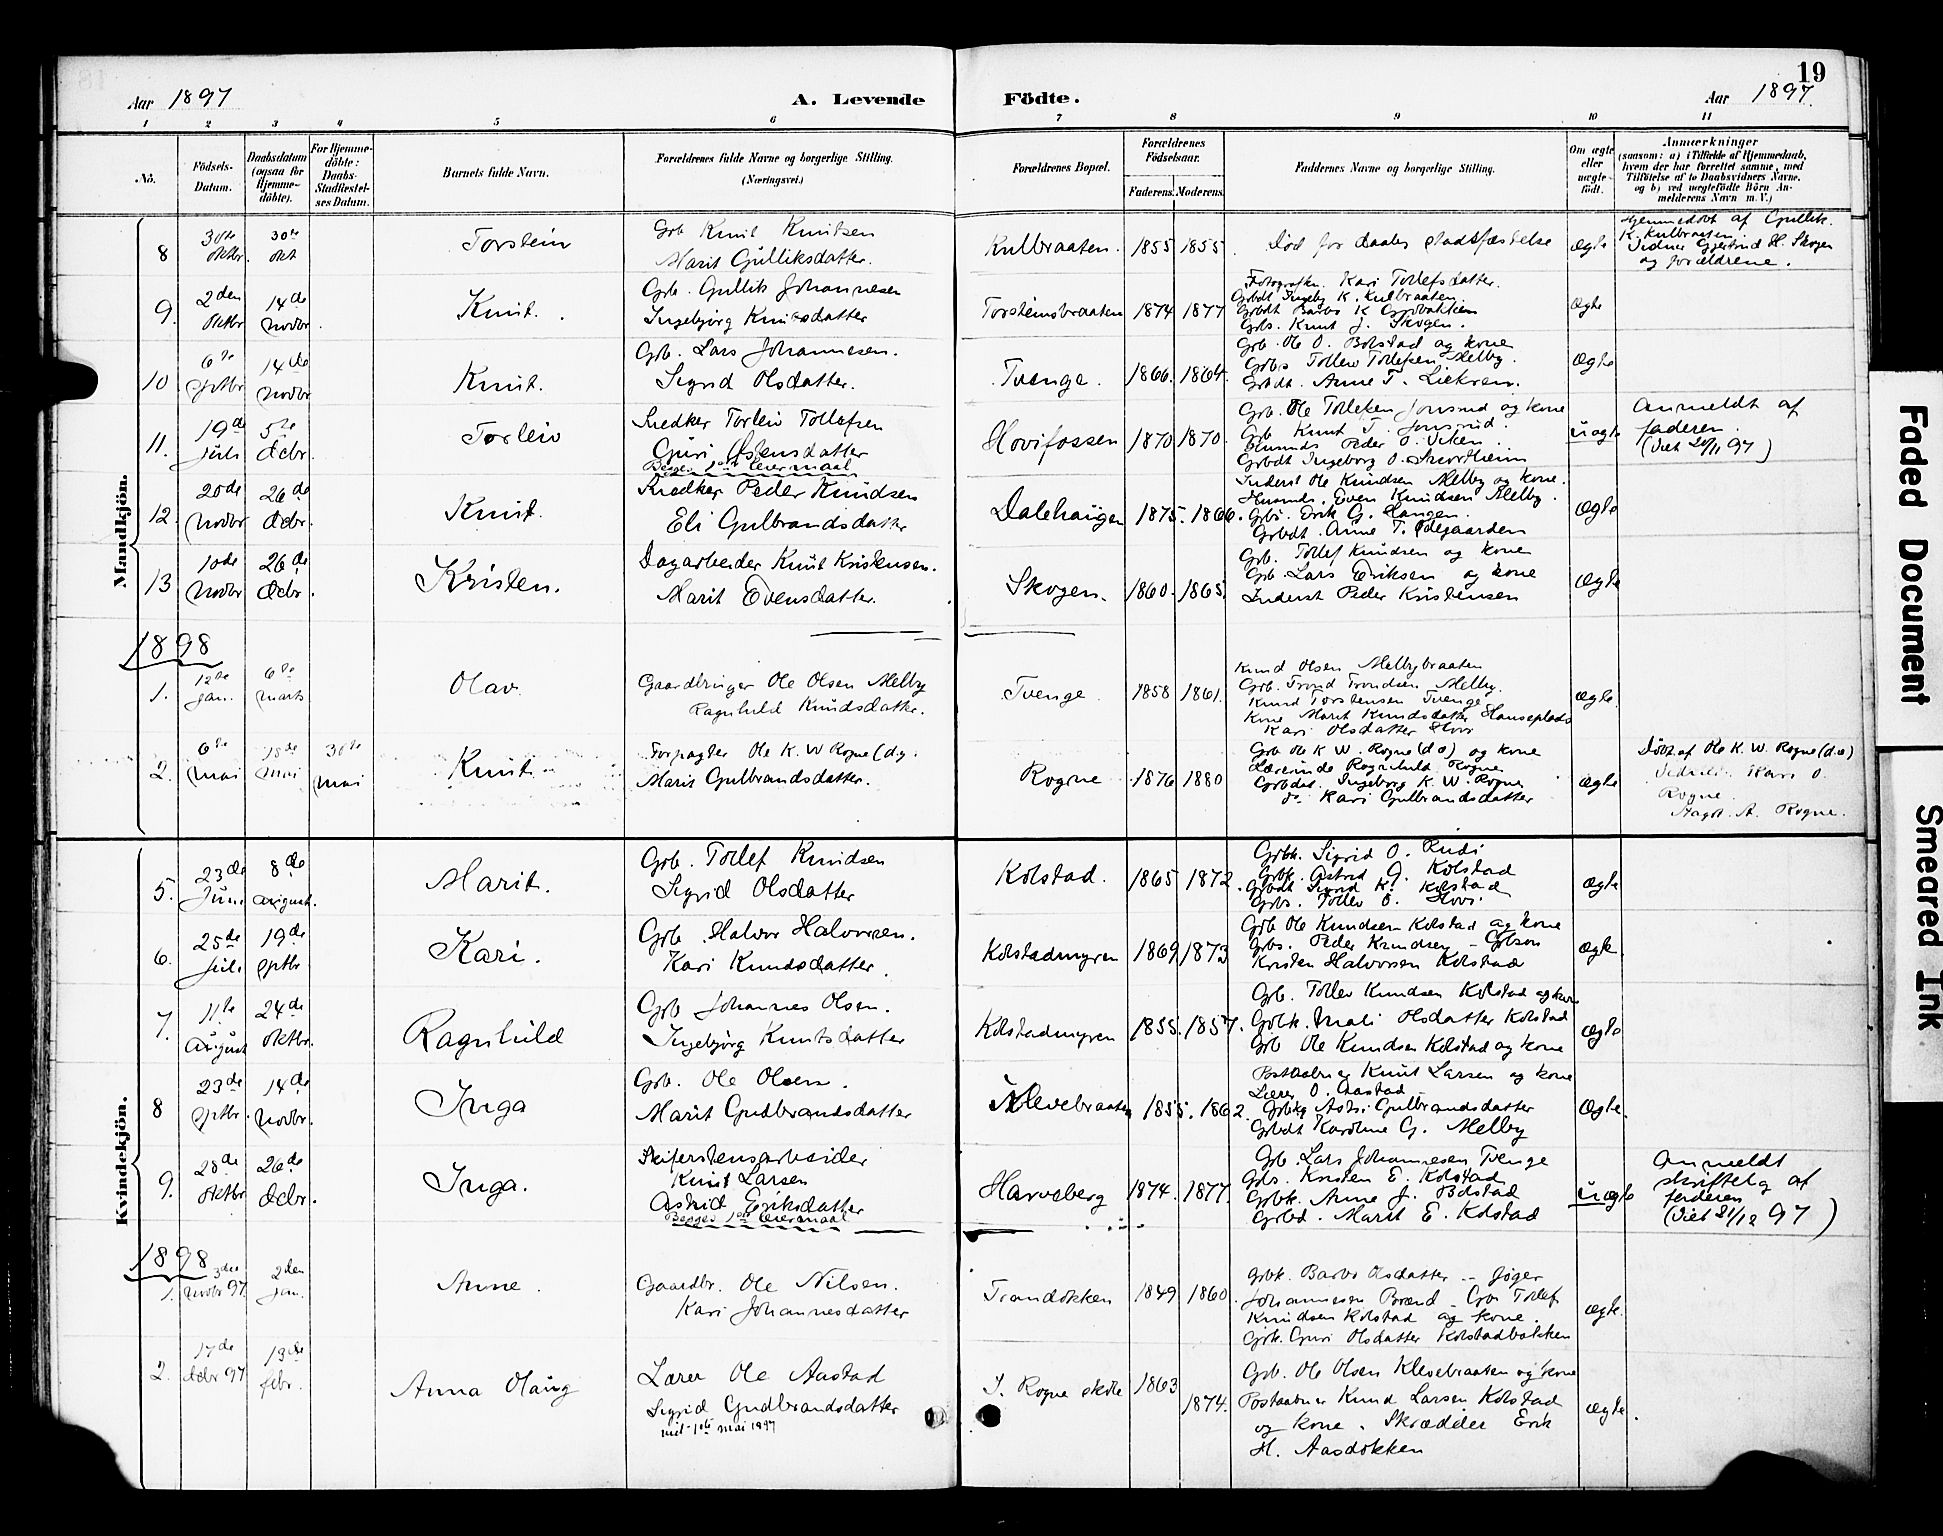 19
Aar 1897
A. Levende
Födte.
Aar 1897.
1 2 3 4 5 6 7 8 9 10 11
No.
Födsels-
Datum.
Daabsdatum
(ogsaa for
Hjemme-
döbte).
For Hjemme-
döbte:
Daabs-
Stadfæstel-
ses Datum.
Barnets fulde Navn.
Forældrenes fulde Navne og borgerlige Stilling.
(Næringsvei.)
Forældrenes Bopæl.
Forældrenes
Födselsaar.
Faderens. Moderens.
Faddernes Navne og borgerlige Stilling.
Om ægte
eller
uægte
födt.
Anmærkninger
(saasom: a) i Tilfælde af Hjemmedaab,
hvem der har forrettet samme, med
Tilföielse af to Daabsvidners Navne,
og b) ved uægtefödte Börn An-
melderens Navn m. V.)
Mandkjön.
8
30te
oktbr.
30te
okt
Torstein
Grb Knut Knutsen
Marit Gulliksdatter.
Kulbraaten.
1855 1855
Död før daabs stadfæstelse
ægte
Hjemmedøbt af Gullik.
K. Kulbraaten.
Vidner Gjertrud H. Skogen
og forældrene.
9.
2den
oktbr
14de
novbr.
Knut.
Grb. Gullik Johannesen
Ingebjørg Knutsdatter
Torsteinsbraaten
1874 1877
Kari Tollefsdatter.
Grbdt Ingeb. K. Kulbraaten.
Grbdt Barbo K
Grbs. Knut J. Skogen.
ægte
10
6te
sptbr.
14de
novbr
Knut.
Grb. Lars Johannesen.
Sigrid Olsdatter.
Tvenge.
1866. 1864.
Grb. Ole O. Bolstad og kone
Grbs Tollev Tollefsen Melby.
Grbdt. Anne T.
ægte
11.
19de
juli
5te
decbr.
Torleiv
Torleiv Tollefsen
Guri Østensdatter
Begges 1ste leiermaal
Hovifossen
1870 1870.
Grb. Ole Tollefsen Jonsrud og kone
Grb Knut T. Jonsrud.
Peder O. Viken.
Grbdt Ingeborg O.
uægte
Anmeldt af
faderen.
(Viet 20/11 97)
12.
20de
novbr
26de
decbr.
Knut.
Peder Knudsen
Eli Gulbrandsdatter
Dalehaugen
1875. 1866.
Inderst Ole Knudsen Melby og kone.
Husmd. Even Knudsen Melby.
Grbs. Erik G. Haugen.
Grbdt. Anne T. Ødegaarden
ægte
13
10de
novbr
26de
decbr.
Kristen.
Dagarbeider Knut Kristensen.
Marit Evensdatter.
Skogen.
1860. 1865.
Grb. Tollef Knudsen og kone
Grb. Lars Eriksen og kone
Inderst Peder Kristensen
ægte
1898
1.
12te
jan.
6te
marts
Olav
Gaardbruger Ole Olsen Melby
Ragnhild Knudsdatter.
Tvenge.
1858 1861.
Knud Olsen Melbybraaten
Grb. Trond Trondsen Melby.
Knud Torstensen Tvenge
Kone Marit Knudsdatter Hauseplads
Kari Olsdatter Hovi
ægte.
2.
6te
mai
15de
mai
30te
mai
Knut
Forpagter Ole K. W Rogne (d.y.
Marit Gulbrandsdatter.
Rogne
1876 1880
Grb Ole K W. Rogne (d æ) og kone
Lærerinde Ragnhild Rogne
Grbdat. Ingeborg K. W. Rogne
do Kari Gulbrandsdatter
ægte
Døbt af Ole K. W. Rogne (d.æ)
Vidner: Kari O.
Rogne
A. Rogne.
Kvindekjön.
5.
23de
Juni
8de
august.
Marit.
Grb. Tollef Knudsen
Sigrid Olsdatter
Kolstad.
1865 1872.
Grbk. Sigrid O. Rudi
Grbk. Astrid J. Kolstad
Grbdt Sigrid K. Kolstad
Grbs. Tollev O. Hovi.
ægte
6.
25de
juli
19de
sptbr
Kari.
Grb. Halvor Halvorsen.
Kari Knudsdatter.
Kolstadmyren
1869 1873
Grb Ole Knudsen Kolstad og kone
Grbs. Peder Knudsen - Grbson
Kristen Halvorsen Kolstad
ægte.
7.
11te
august
24de
oktbr.
Ragnhild
Grb Johannes Olsen.
Ingebjørg Knutsdatter
Kolstadmyren
1855. 1857.
Grb. Tollev Knudsen Kolstad og kone
Grbk. Mali Olsdatter Kolstad
Grb Ole Knudsen Kolstad og kone
ægte
8
23de
sptbr.
14de
novbr.
Inga
Grb. Ole Olsen.
Marit Gudbrandsdatter
Klevebraaten
1855. 1862.
Postaabner Knut Larsen og kone
Lærer O. Aastad
Grbkg Astri Gulbrandsdatter
Grbdt Karoline G. Melby
ægte.
9.
28de
oktbr
26de
decbr.
Inga.
Skiferstensarbeider
Knut Larsen
Astrid Eriksdatter
Begges 1ste leiermaal
Harveberg
1874. 1877.
Grb. Lars Johannesen Tvenge
Grbs. Kristen E. Kolstad
Grbk. Anne J. Bolstad
Grbd. Marit E. Kolstad
uægte
Anmeldt
skriftelig af
faderen
(Viet 31/12 97)
1898
1.
3die
novbr 97
2den
jan.
Anne.
Gaardbr. Ole Nilsen.
Kari Johannesdatter
Trandokken
1849 1860.
Grbk. Barbo Olsdatter -- Jöger
Johannesen Brænd - Grb Tollef
Knudsen Kolstad og kone.
Grbk. Guri Olsdatter Kolstadbakken
ægte.
2.
17de
decbr 97
13de
febr.
Anna Olaug
Lærer Ole Aastad
Sigrid Gudbrandsdatter
viet 1ste mai 1897
I. Rogne skole
1863
1874.
Grb. Ole Olsen Klevebraaten og kone
Postaabner Knud Larsen Kolstad
og kone. Skrædder Erik
H. Aasdokken
ægte.
Faded Document
Smeared Ink